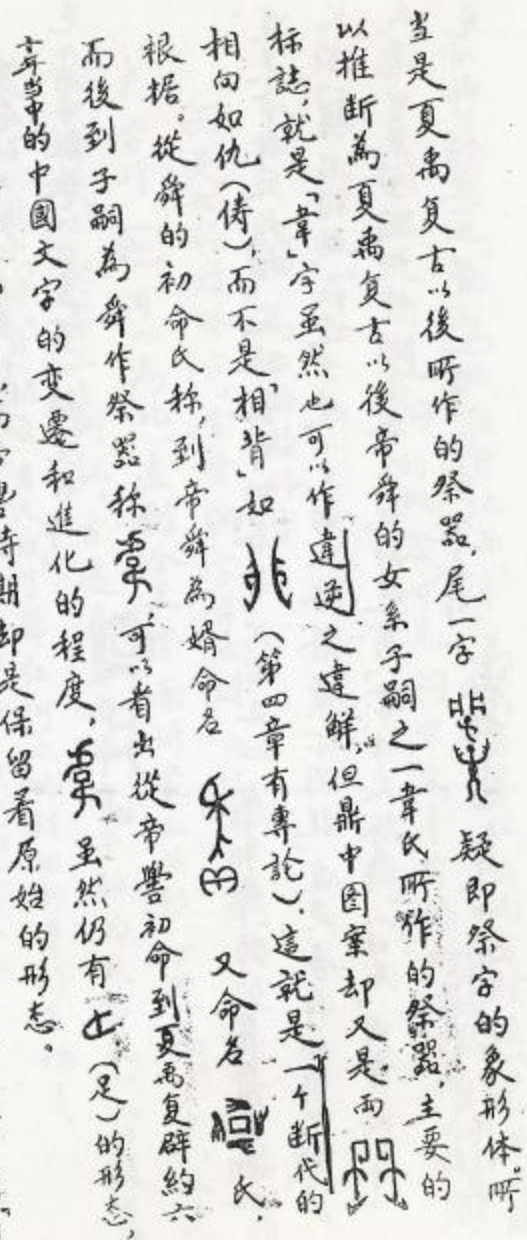 当是夏禹复古以後所作的祭器，尾一字 疑即祭字的象形体。所
以推断為夏禹复古以後帝舜的女系子嗣之一韋氏所作的祭器，主要的
标誌，就是「韋」字虽然也可以作違逆之違解，但鼎中图案却又是两
相向如仇（俦），而不是「相背」如 （第四章有專論）。這就是一个断代的
根据。從舜的初命氏称，到帝舜為婿命名 又命名 氏，
而後到子嗣為舜作祭器称 ，可以看出從帝嚳初命到夏禹复辟約六
十年当中的中國文字的变遷和進化的程度， 虽然仍有 （足）的形态，
时期却是保留着原始的形态。